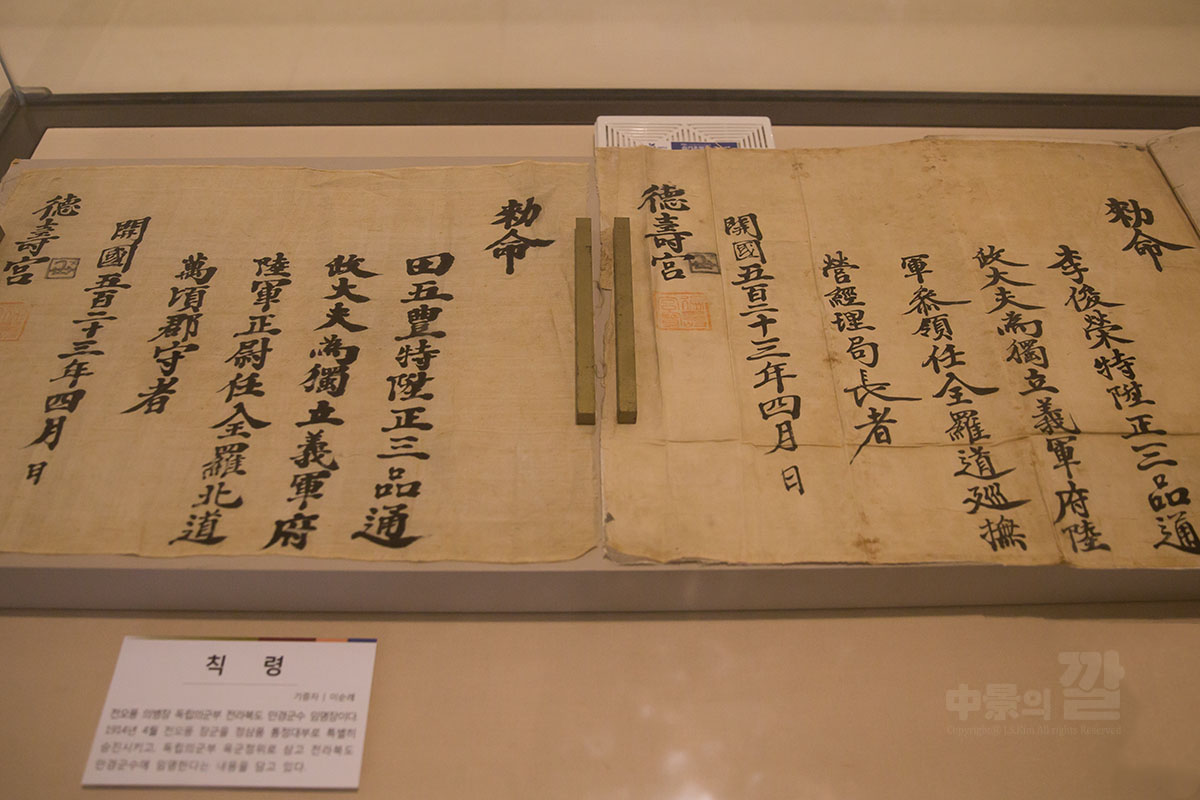 勅命
李俊榮特陞正三品通
政大夫爲獨立義軍府陸
軍參領任全羅道巡撫
營經理局長者
開國五百二十三年四月 日
德壽宮
勅命
田五豊特陞正三品通
政大夫爲獨立義軍府
陸軍正尉任全羅北道
萬頃郡守者
開國五百二十三年四月 日
德壽宮
칙 령
기증자 | 이순례
전오풍 의병장 독립의군부 전라북도 만경군수 임명장이다.
1914년 4월 전오풍 장군을 정삼품 통정대부로 특별히
승진시키고, 독립의군부 육군정위로 삼고 전라북도
만경군수에 임명한다는 내용을 담고 있다.
中景의 깔